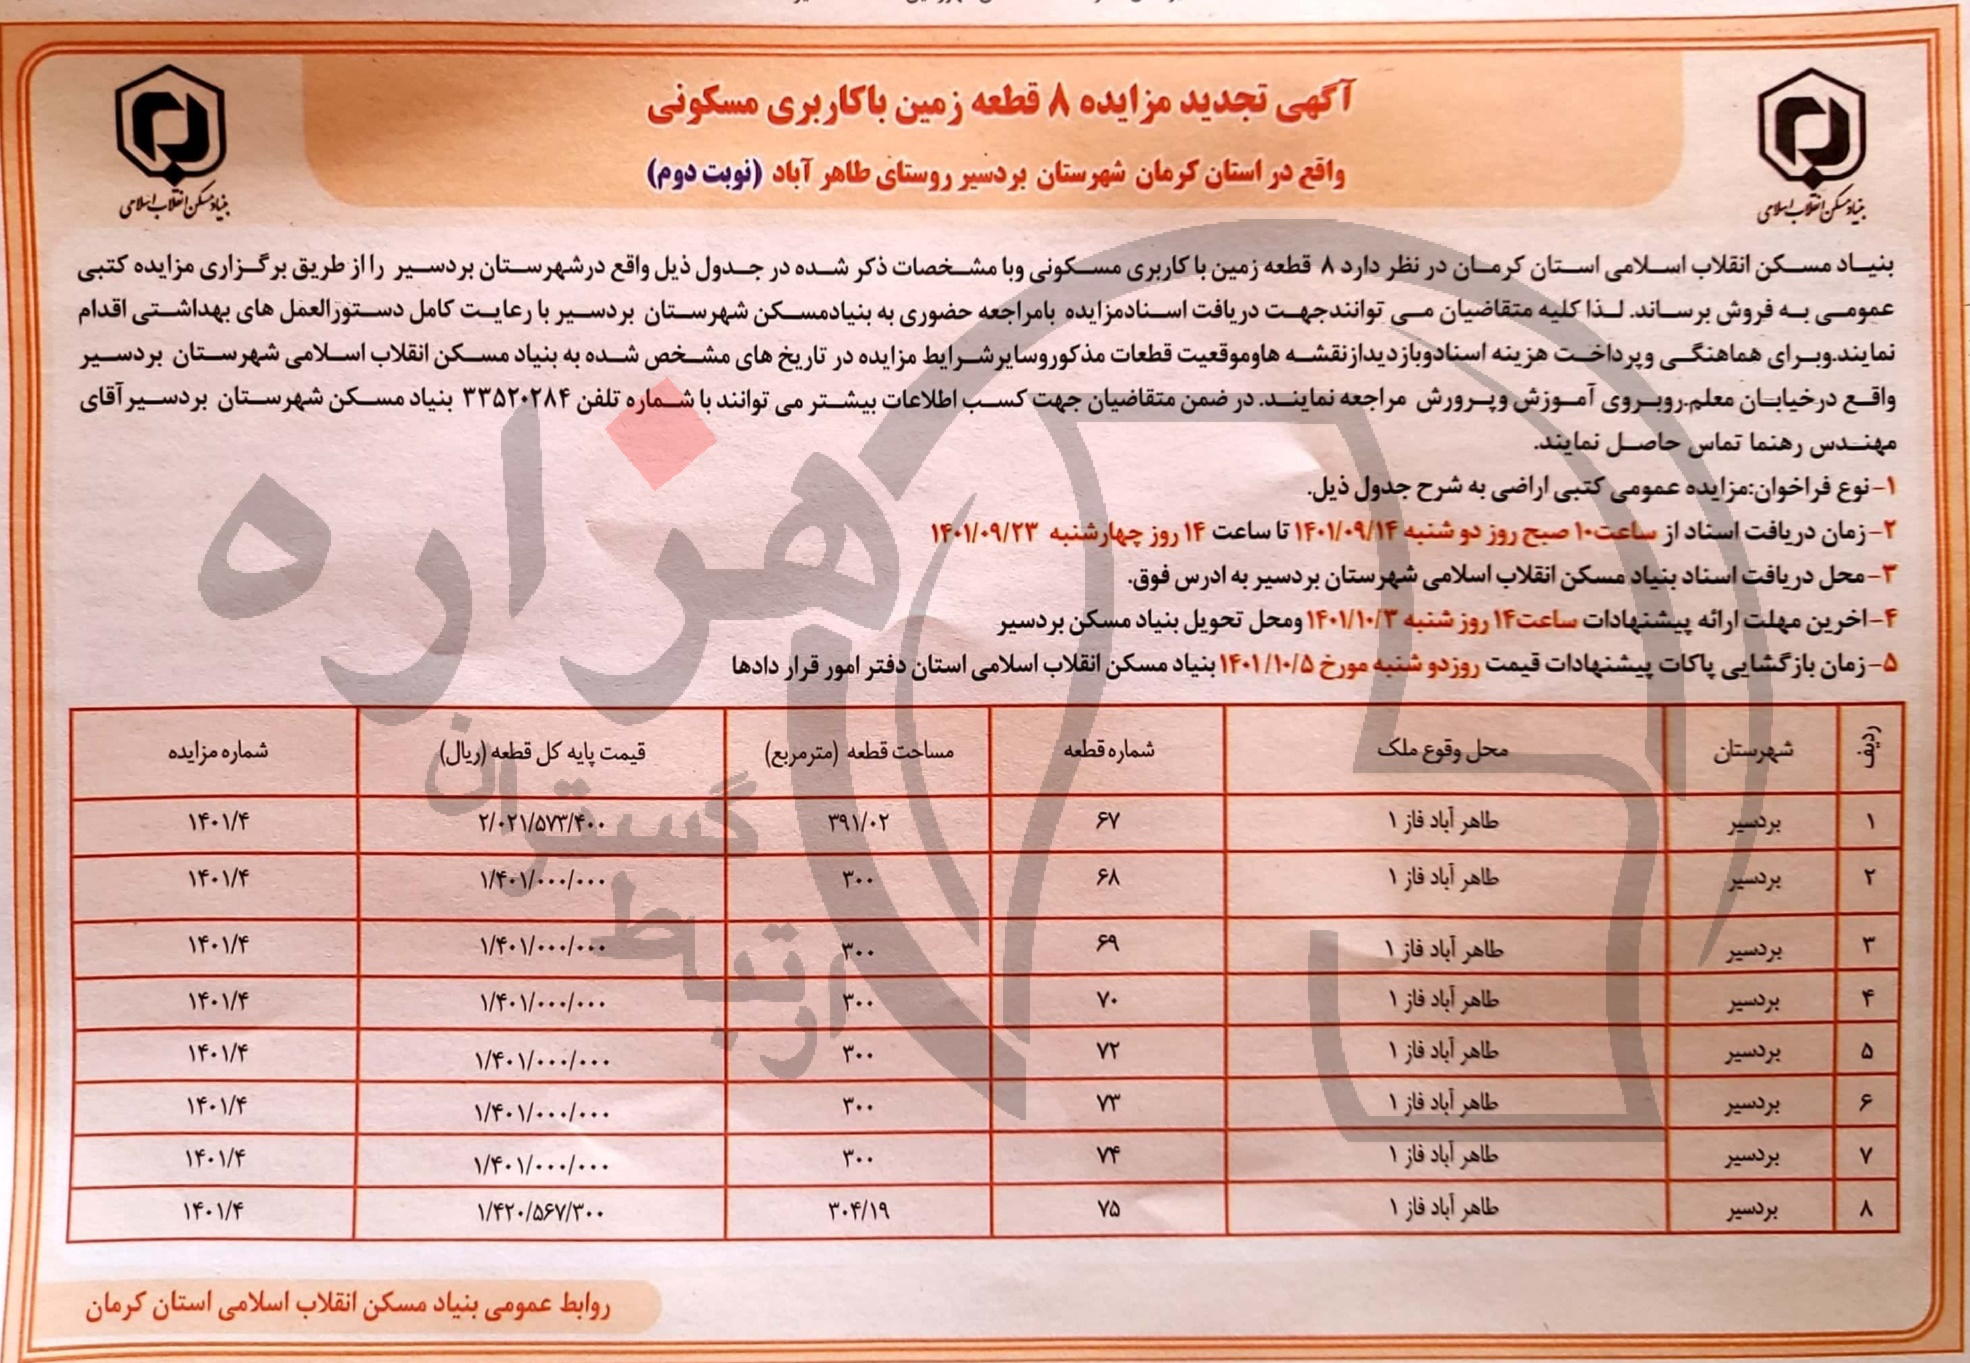 آگهی تجدید مزایده ۸ قطعه زمین باکاربری مسکونی
واقع در استان کرمان شهرستان بردسیر روستای طاهر آباد (نوبت دوم)
بنیاد مسکن انقلاب اسلامی
بنیاد مسکن انقلاب اسلامی
بنیـاد مسـکن انقلاب اسـلامی اسـتان کرمـان در نظر دارد ۸ قطعه زمین با کاربری مسـکونی وبا مشـخصات ذکر شـده در جـدول ذیل واقع درشهرسـتان بردسـیر را از طریق برگـزاری مزایده کتبی
عمومـی بـه فروش برسـاند. لـذا کلیه متقاضیان مـی توانندجهـت دریافت اسـنادمزایده بامراجعه حضوری به بنیادمسـکن شهرسـتان بردسـیر با رعایـت کامل دسـتورالعمل های بهداشـتی اقدام
نمایند.وبـرای هماهنگـی وپرداخـت هزینه اسنادوبازدیدازنقشـه هاوموقعیت قطعات مذکوروسایرشـرایط مزایده در تاریخ های مشـخص شـده به بنیاد مسـکن انقلاب اسـلامی شهرسـتان بردسـیر
واقـع درخیابـان معلم.روبـروی آمـوزش وپـرورش مراجعه نماینـد. در ضمن متقاضیان جهت کسـب اطلاعات بیشـتر می توانند با شـماره تلفن ۳۳۵۲۰۲۸۴ بنیاد مسـکن شهرسـتان بردسـیر آقای
مهنـدس رهنما تماس حاصـل نمایند.
۱-نوع فراخوان:مزایده عمومی کتبی اراضی به شرح جدول ذیل.
۲-زمان دریافت اسناد از ساعت۱۰ صبح روز دو شنبه ۱۴۰۱/۰۹/۱۴ تا ساعت ۱۴ روز چهارشنبه ۱۴۰۱/۰۹/۲۳
۳-محل دریافت اسناد بنیاد مسکن انقلاب اسلامی شهرستان بردسیر به ادرس فوق.
۴-اخرین مهلت ارائه پیشنهادات ساعت۱۴ روز شنبه ۱۴۰۱/۱۰/۳ ومحل تحویل بنیاد مسکن بردسیر
۵-زمان بازگشایی پاکات پیشنهادات قیمت روزدو شنبه مورخ ۱۴۰۱/۱۰/۵ بنیاد مسکن انقلاب اسلامی استان دفتر امور قرار دادها
ردیف شهرستان محل وقوع ملک شماره قطعه مساحت قطعه (مترمربع) قیمت پایه کل قطعه (ریال) شماره مزایده
۱ بردسیر طاهر آباد فاز ۱ ۶۷ ۳۹۱/۰۲ ۲/۰۲۱/۵۷۳/۴۰۰ ۱۴۰۱/۴
۲ بردسیر طاهر آباد فاز ۱ ۶۸ ۳۰۰ ۱/۴۰۱/۰۰۰/۰۰۰ ۱۴۰۱/۴
۳ بردسیر طاهر آباد فاز ۱ ۶۹ ۳۰۰ ۱/۴۰۱/۰۰۰/۰۰۰ ۱۴۰۱/۴
۴ بردسیر طاهر آباد فاز ۱ ۷۰ ۳۰۰ ۱/۴۰۱/۰۰۰/۰۰۰ ۱۴۰۱/۴
۵ بردسیر طاهر آباد فاز ۱ ۷۲ ۳۰۰ ۱/۴۰۱/۰۰۰/۰۰۰ ۱۴۰۱/۴
۶ بردسیر طاهر آباد فاز ۱ ۷۳ ۳۰۰ ۱/۴۰۱/۰۰۰/۰۰۰ ۱۴۰۱/۴
۷ بردسیر طاهر آباد فاز ۱ ۷۴ ۳۰۰ ۱/۴۰۱/۰۰۰/۰۰۰ ۱۴۰۱/۴
۸ بردسیر طاهر آباد فاز ۱ ۷۵ ۳۰۴/۱۹ ۱/۴۲۰/۵۶۷/۳۰۰ ۱۴۰۱/۴
روابط عمومی بنیاد مسکن انقلاب اسلامی استان کرمان
هزاره
ارتباط
گستران